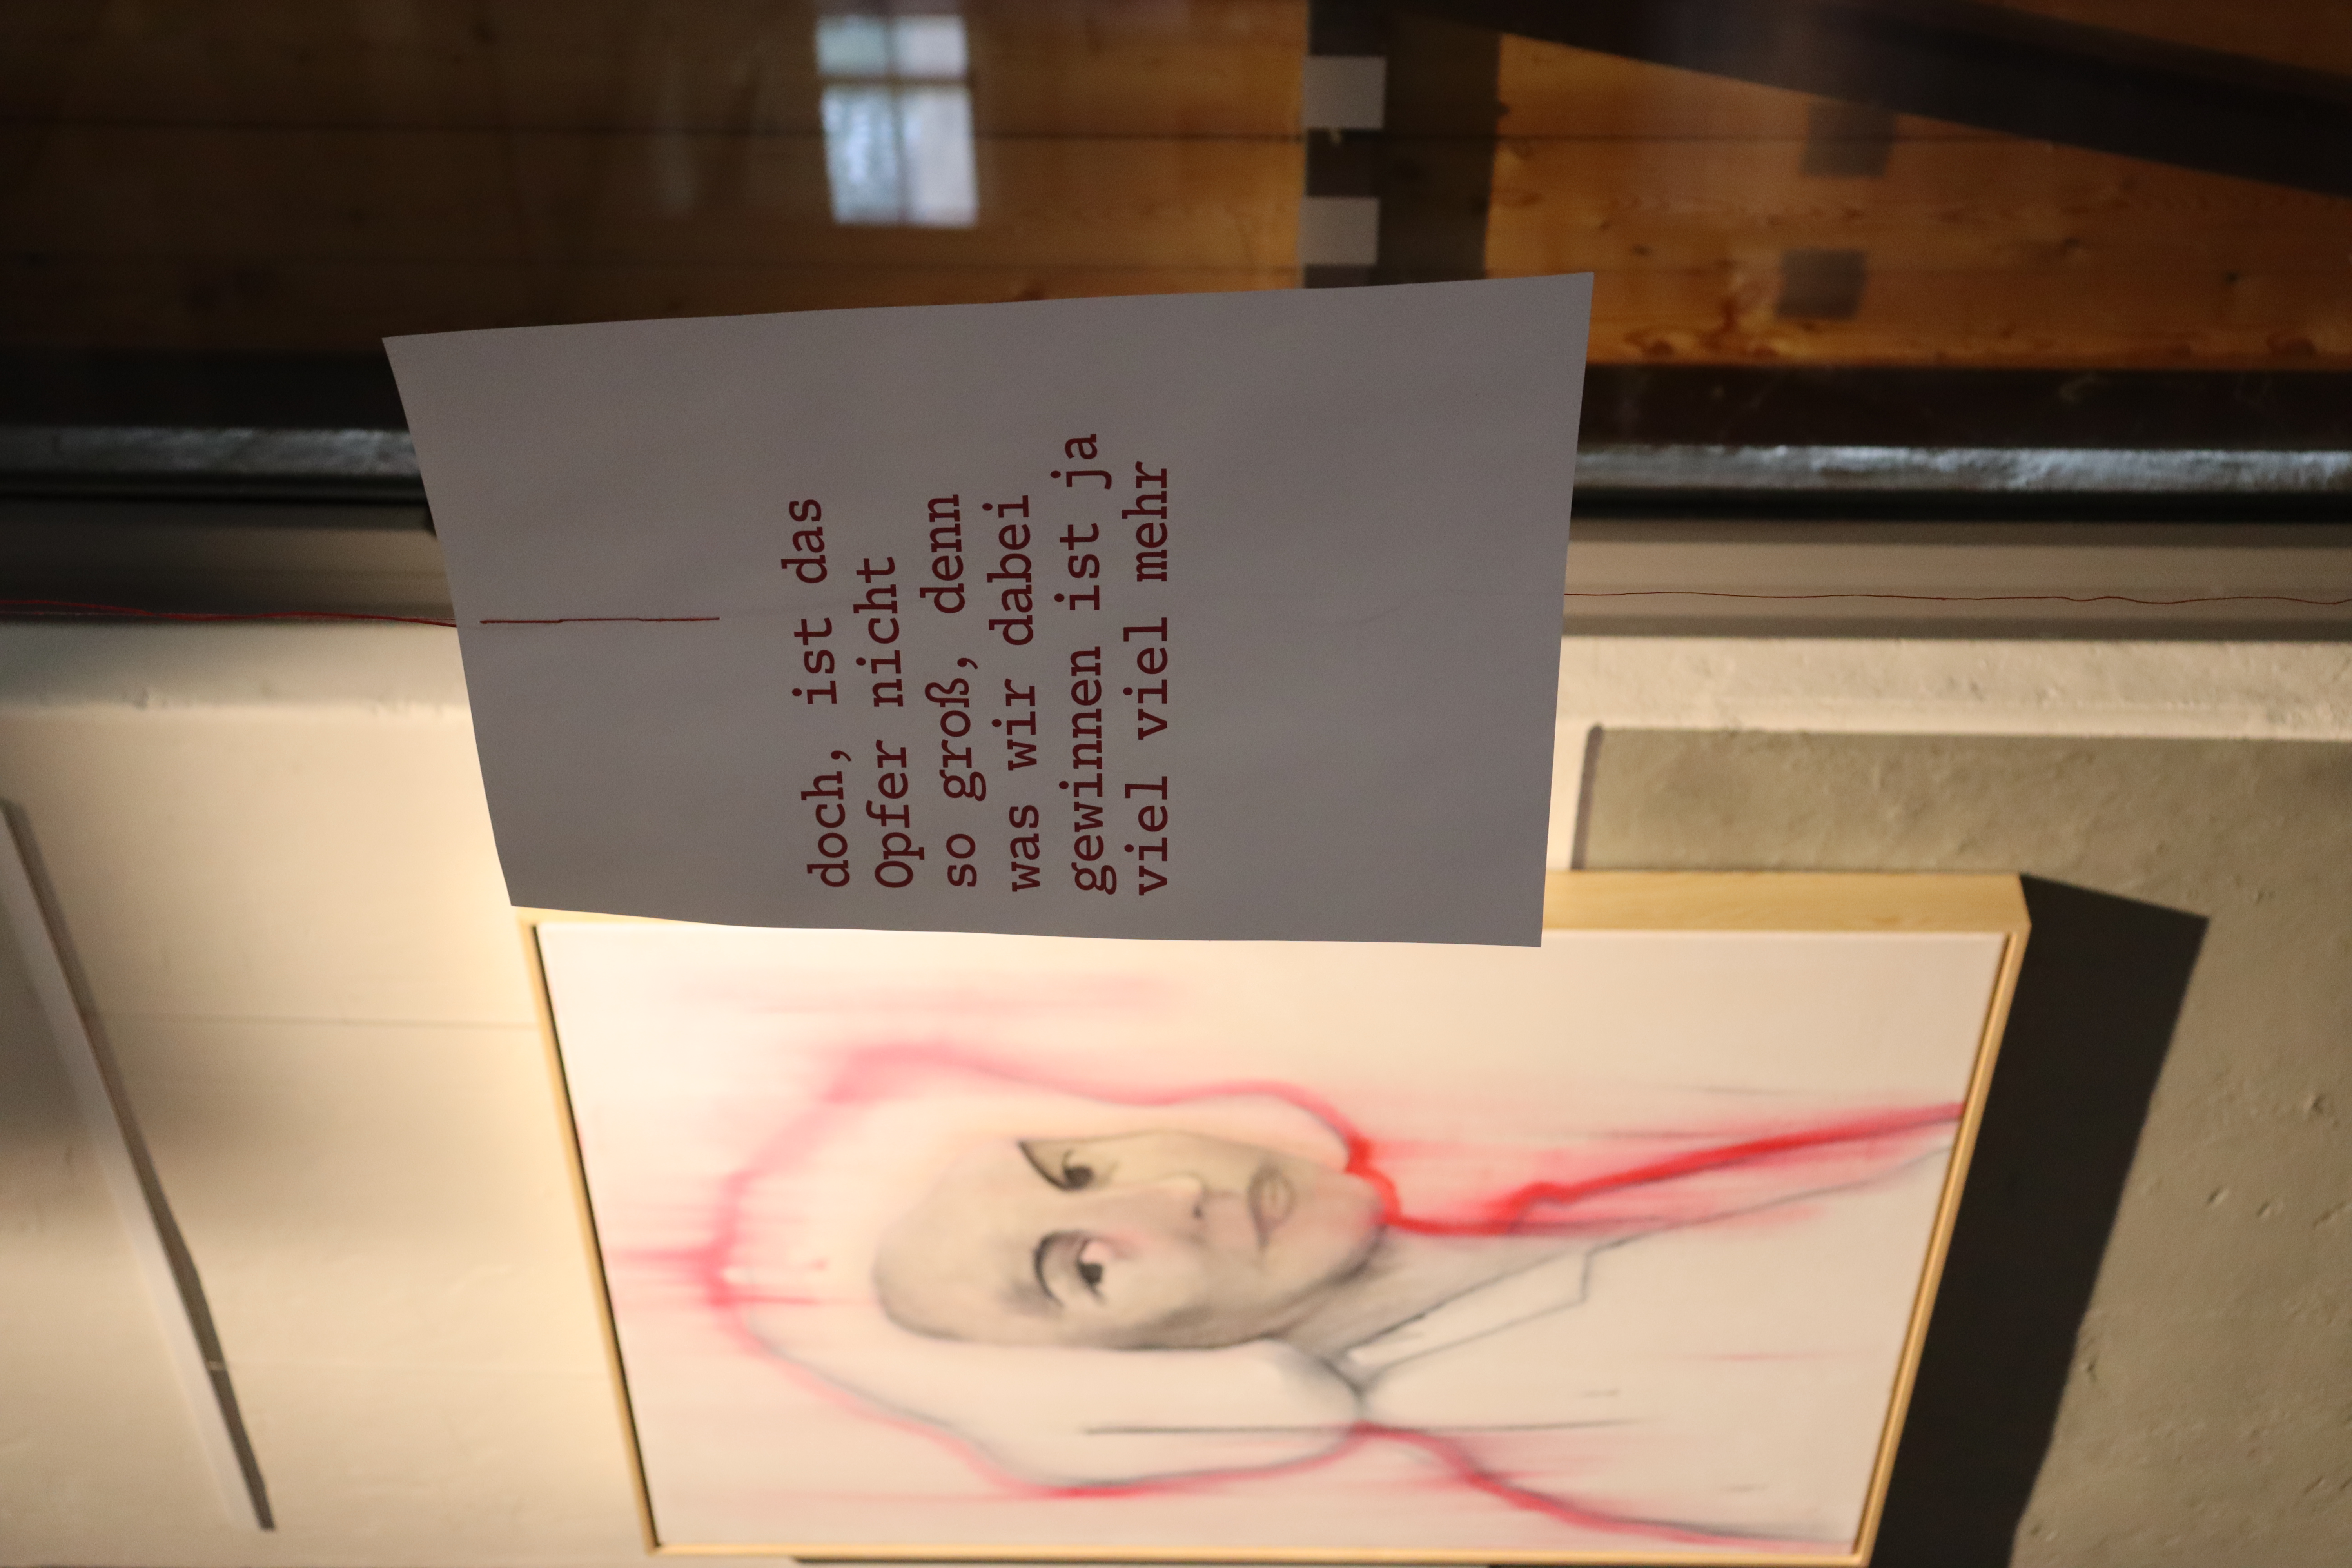 doch, ist das
Opfer nicht
so groß, denn
was wir dabei
gewinnen ist ja
viel viel mehr